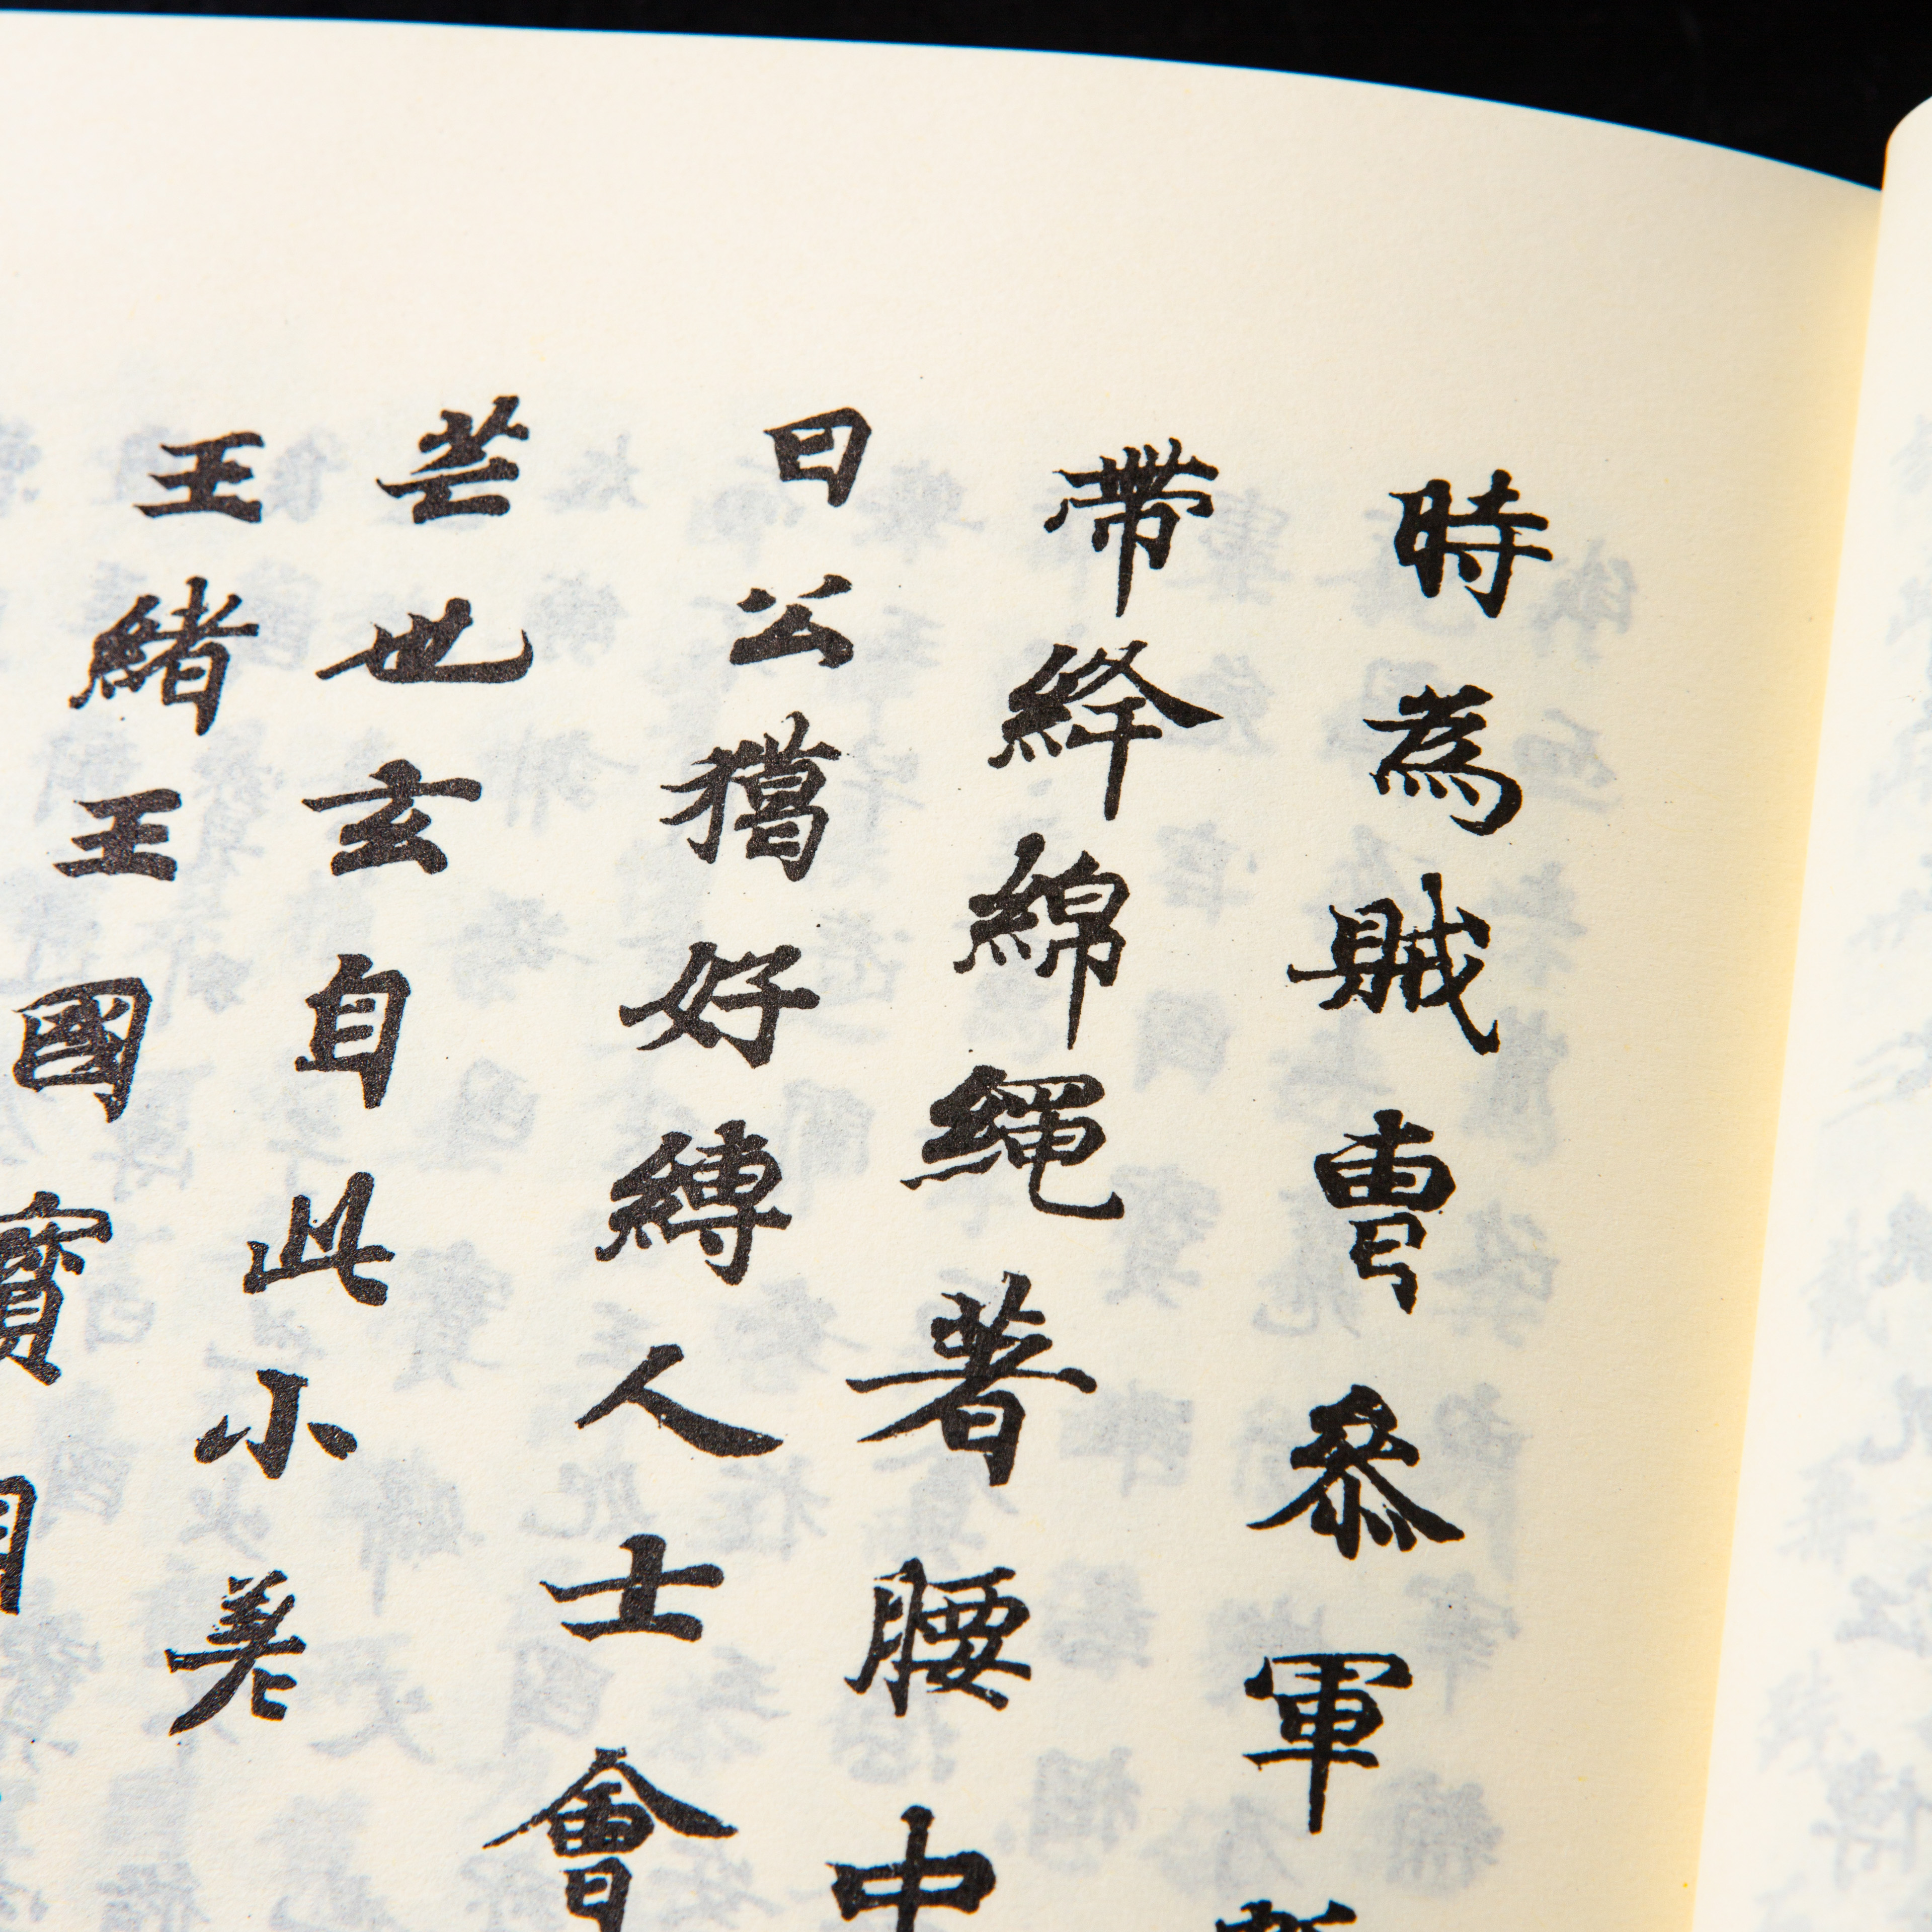 時為賊曹參軍
帶絳綿繩著腰中
曰公獦好縛人士會
芒也玄自此小差
王緒王國寶